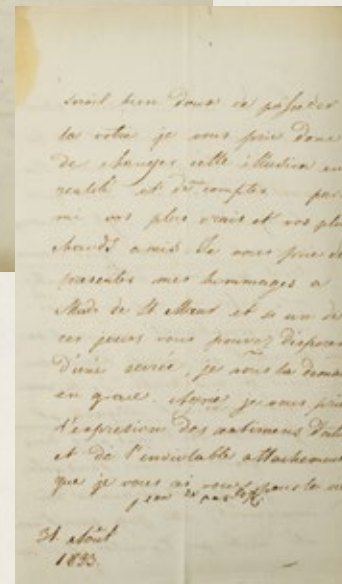 serait bien doux de posseder
la votre je vous prie donc
de changer cette illusion en
realité et de compter par
mi vos plus vrais et vos plus
chauds amis. Je vous prie de
presenter mes hommages a
Made de St Maur et si un de
ces jours vous pouvez disposer
d'une soirée, je vous la demande
en grace. je vous prie
l'expression des sentimens
et de l'inviolable attachement
que je vous ai
31 août
1833.